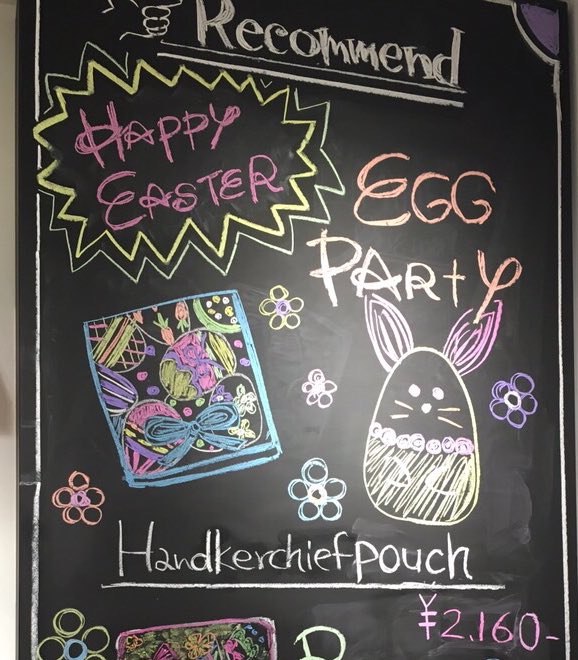 Recommend
HAPPY
EASTER
EGG
PARTY
Handkerchief pouch
¥2.160-